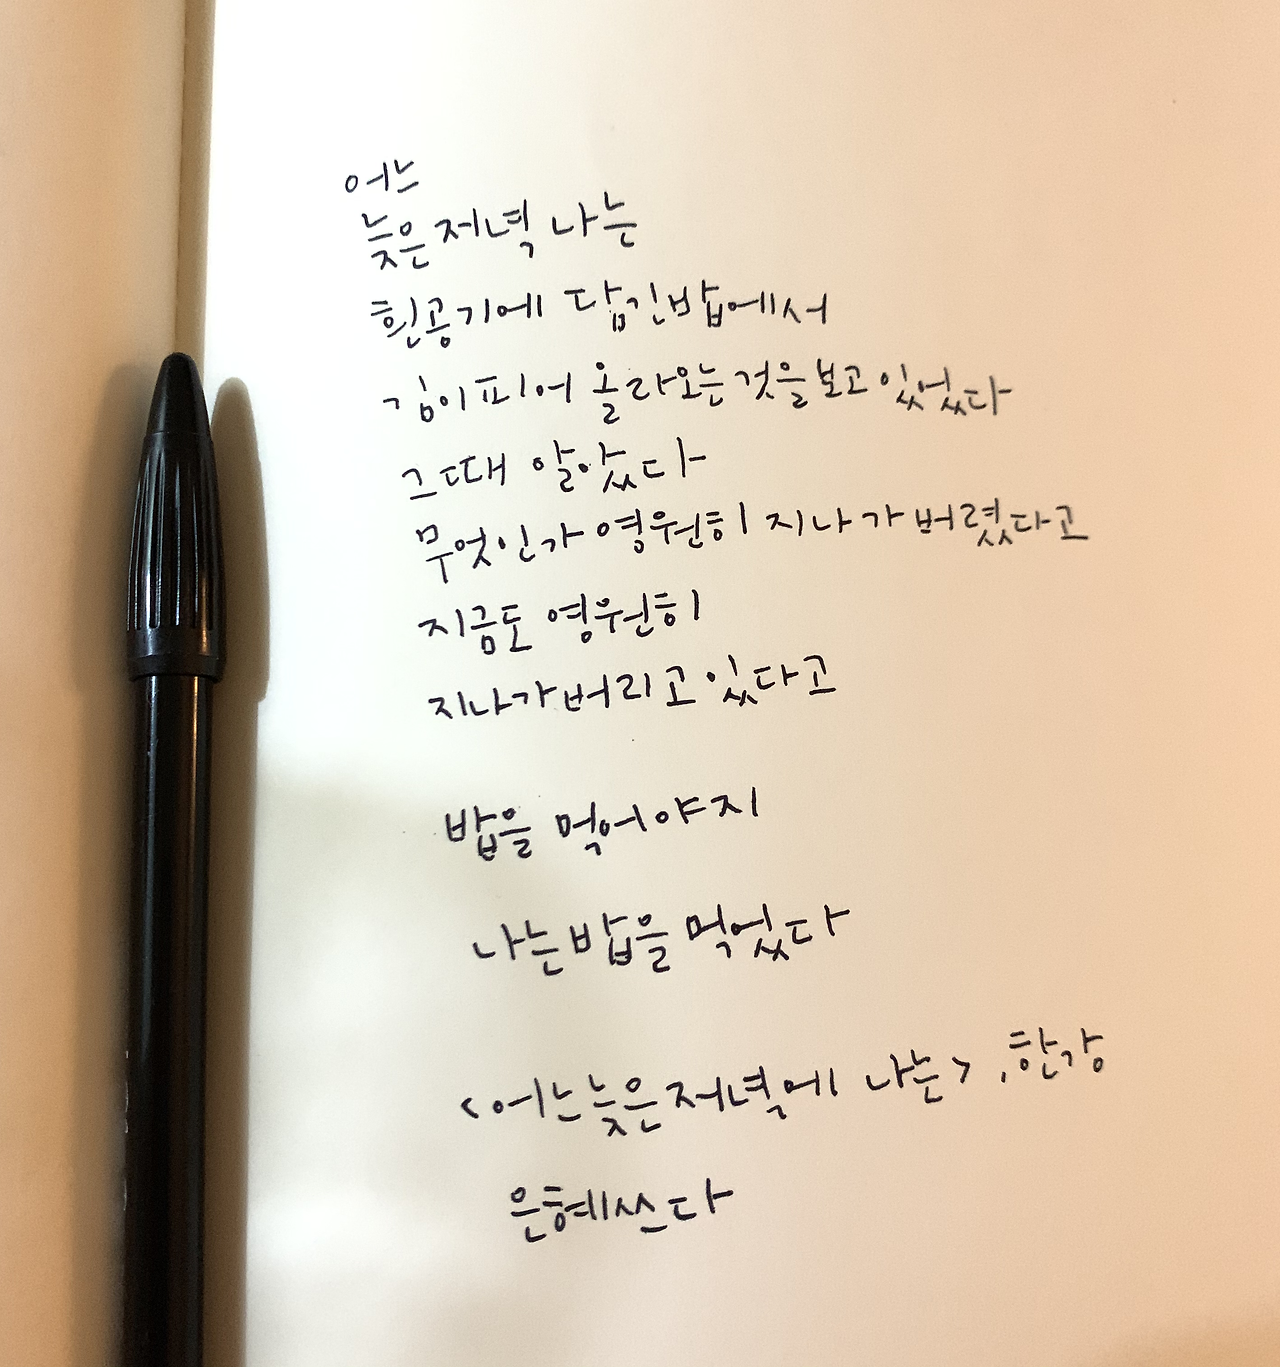 어느
늦은 저녁 나는
흰 공기에 담긴 밥에서
김이 피어 올라오는 것을 보고 있었다
그때 알았다
무엇인가 영원히 지나가버렸다고
지금도 영원히
지나가버리고 있다고
밥을 먹어야지
나는 밥을 먹었다
<어느 늦은 저녁에 나는>, 한강
은혜쓰다